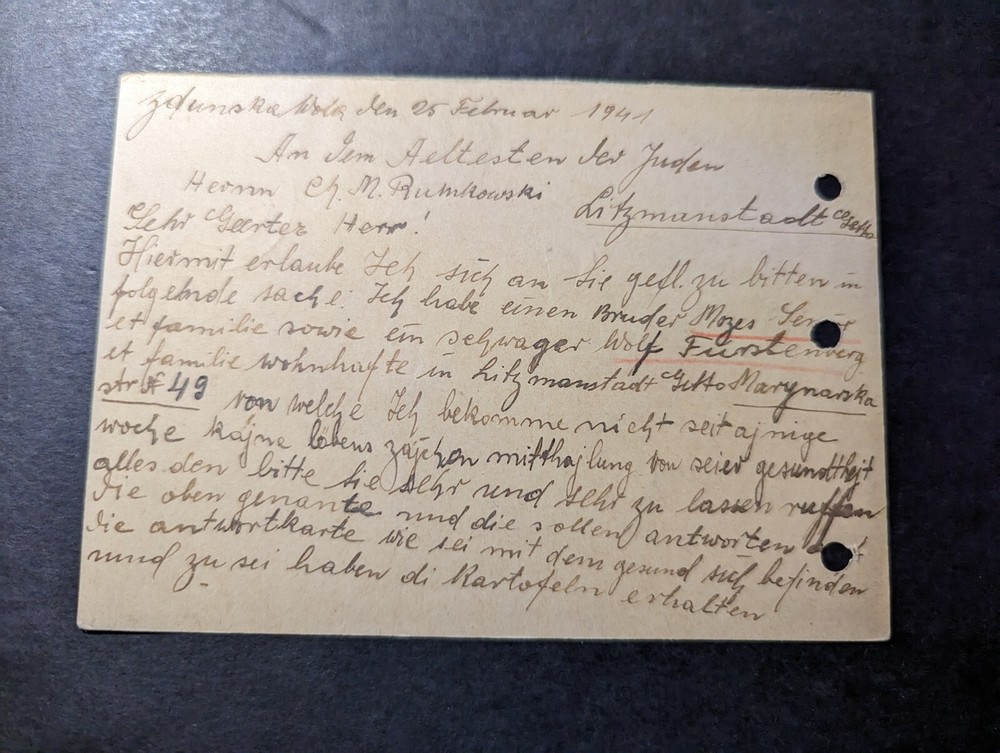 Zdunska Wola den 25 Februar 1941
An Dem Aeltesten der Juden
Herrn Ch. M. Rumkowski
Litzmanstadt Getto
Sehr Geerter Herr!
Hiermit erlaube Ich sich an Sie gefl. zu bitten in
folgehde sache: Ich habe einen Bruder Mozes
et familie sowie ein schwager Wolf Fürstenberg
et familie wohnhafte in Litzmanstadt Getto Marynarska
str № 49 von welche Ich bekomme nicht seit ajnige
woche kajne läbens zajchen mitthajlung von seier gesundthejt
alles den bitte Sie sehr und sehr zu lassen ruffen
die oben genante und die sollen antworten
die antwortkarte wie sei mit dem gesund sich befinden
uund zu sei haben di Kartofeln erhalten